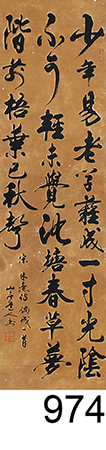 少年易老学难成一寸光陰
不可輕未覺池塘春草夢
階前梧葉已秋聲
宋朱熹詩偶成一首
974